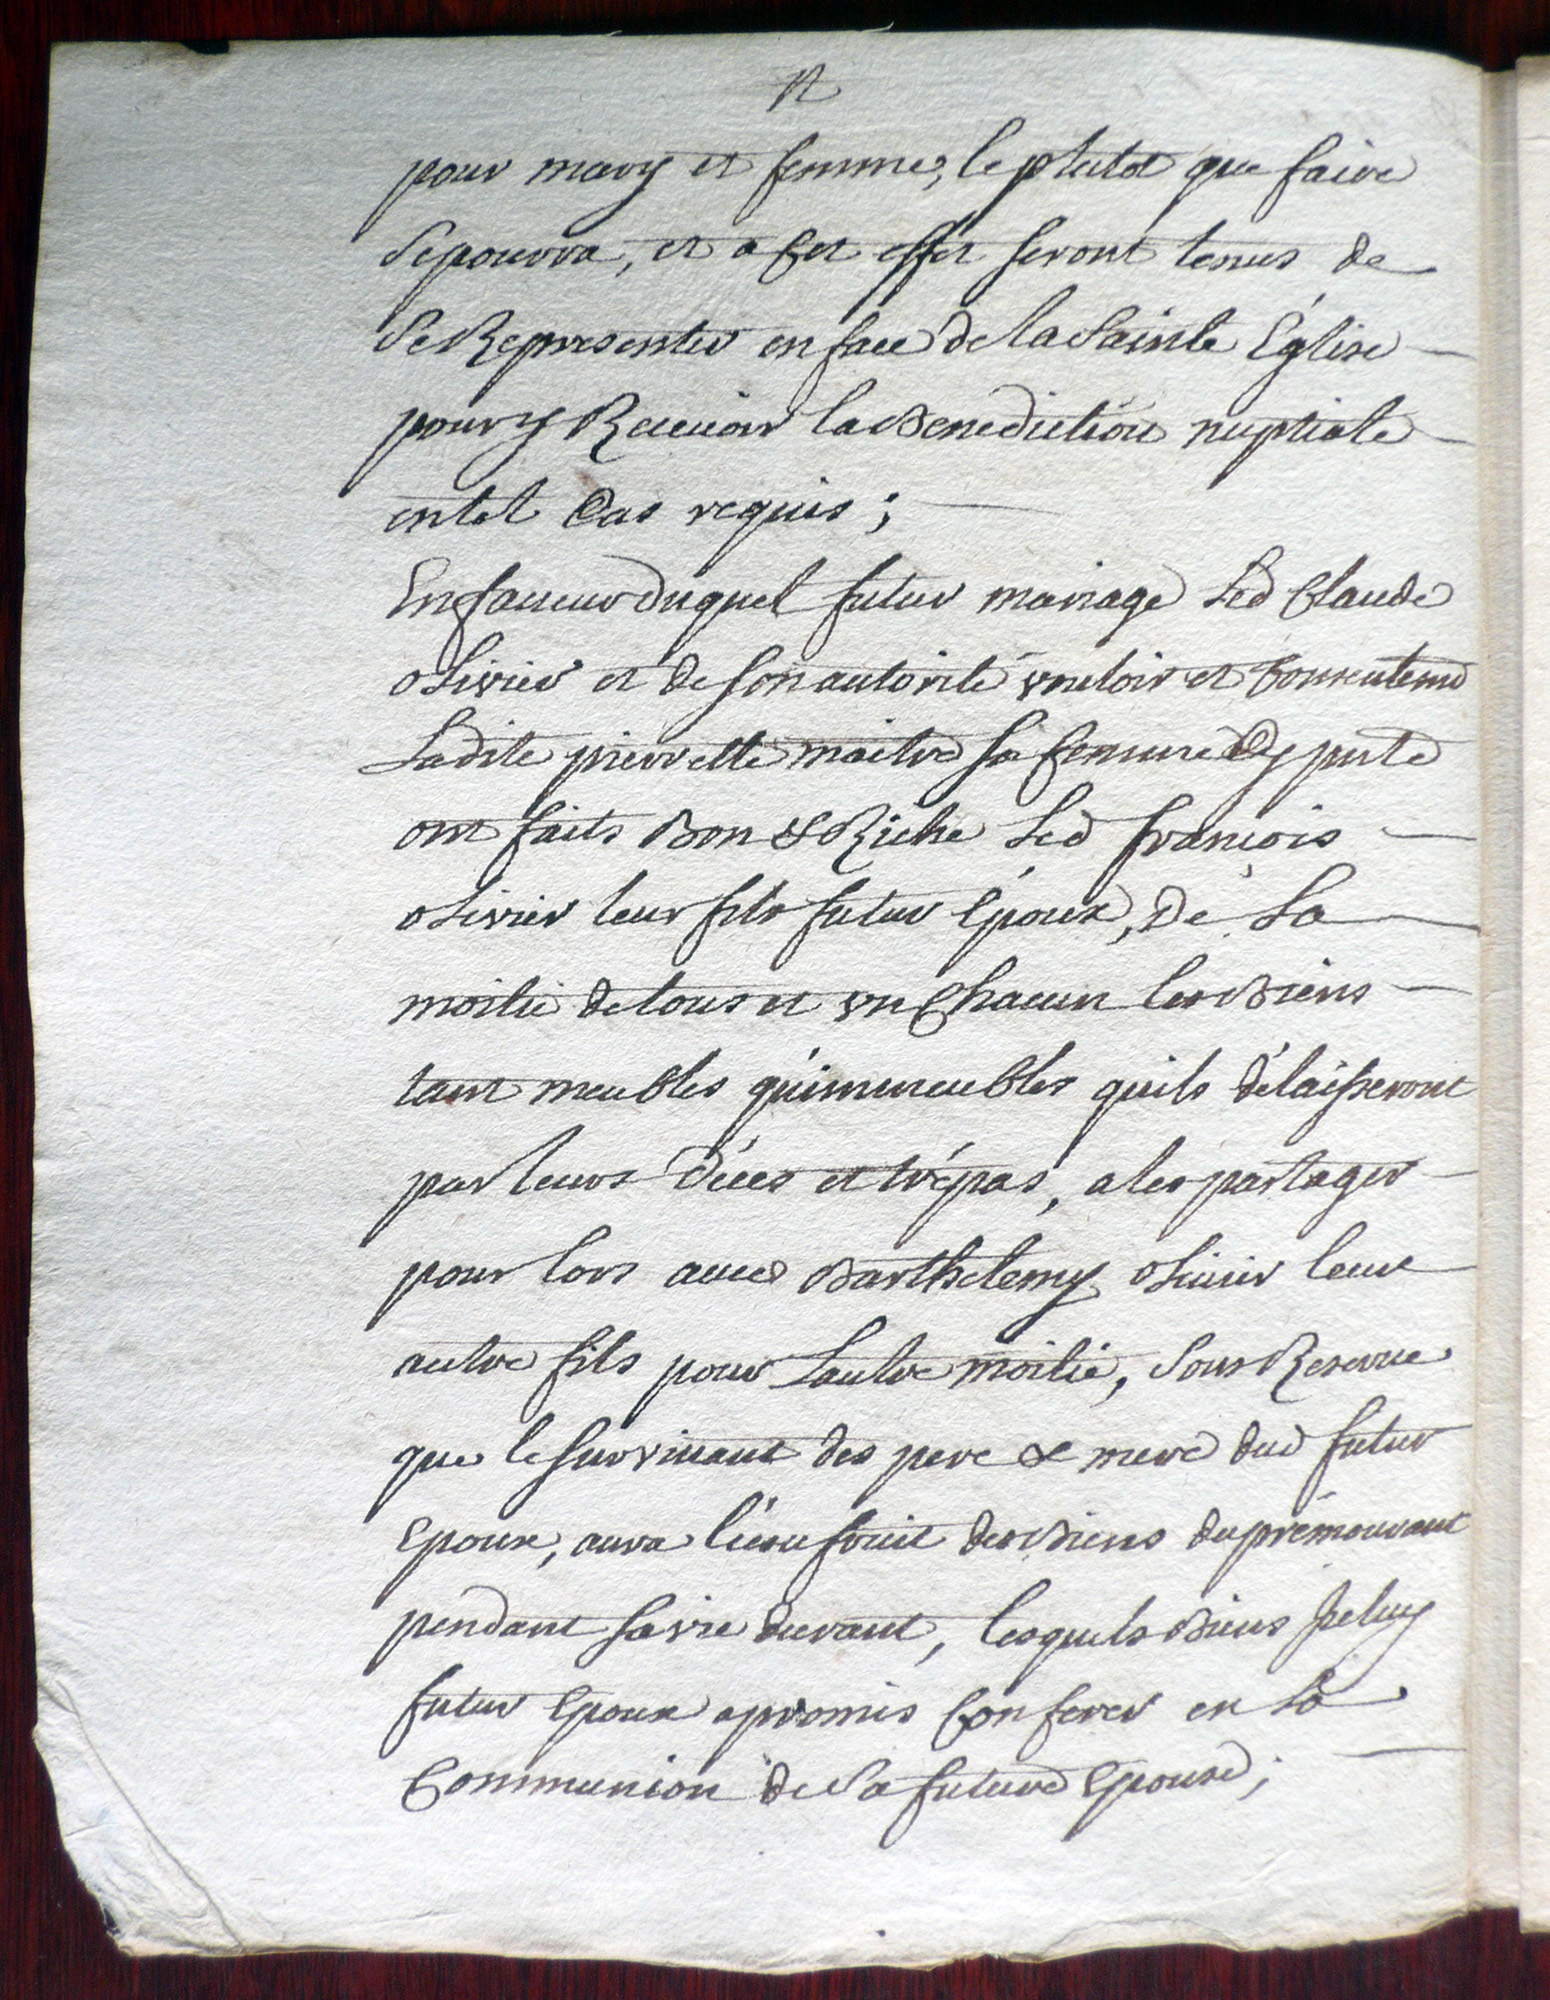 pour mary et femme, le plutot que faire
se pourra, et a cet effet seront tenus de
se Representer en face de la sainte Eglise
pour y Recevoir la Benediction nuptiale
en tel Cas requis ;
En faveur duquel futur mariage led Claude
olivier et de son autorité vouloir et consentemt
ladite pierrette maitre sa femme
ont faits Bon & Riche led françois
olivier leur fils futur époux, de la
moitie de tous et un Chacun les Biens
tant meubles qu'immeubles quils délaisseront
par leurs déces et trépas, a les partager
pour lors avec Barthelemy olivier leur
autre fils pour lautre moitié, sous Reserve
que le survivant des pere & mere dud futur
Epoux, aura l'usufruit des Biens du prémourant
pendant sa vie durant, lesquels Biens Jceluy
futur Epoux a promis Conferer en la
Communion de sa future Epouse ;